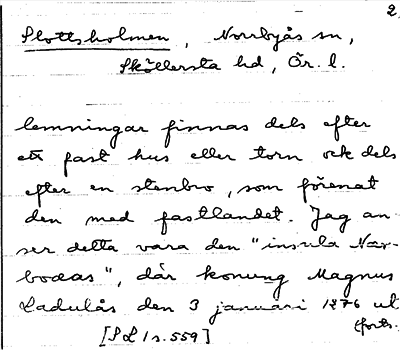 2.
Slottsholmen, Norrbyås sn,
Sköllersta hd, Ör. l.
lemningar finnas dels efter
ett fast hus eller torn ock dels
efter en stenbro, som förenat
den med fastlandet. Jag an-
ser detta vara den "insula Nær-
boaas", där konung Magnus
Ladulås den 3 januari 1276 ut
(forts.
[SL 1 s. 559]